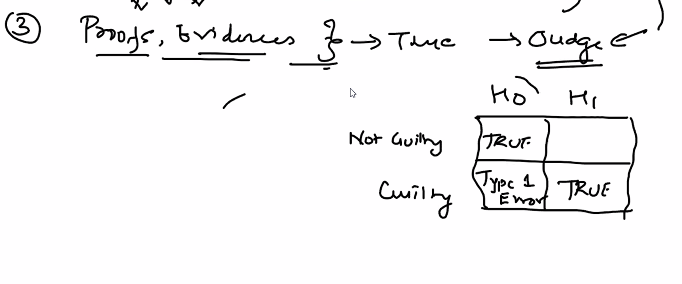 ③ Proofs, Evidences } → True → Judge
H0 H1
Not Guilty TRUE
Guilty Type 1 Error TRUE